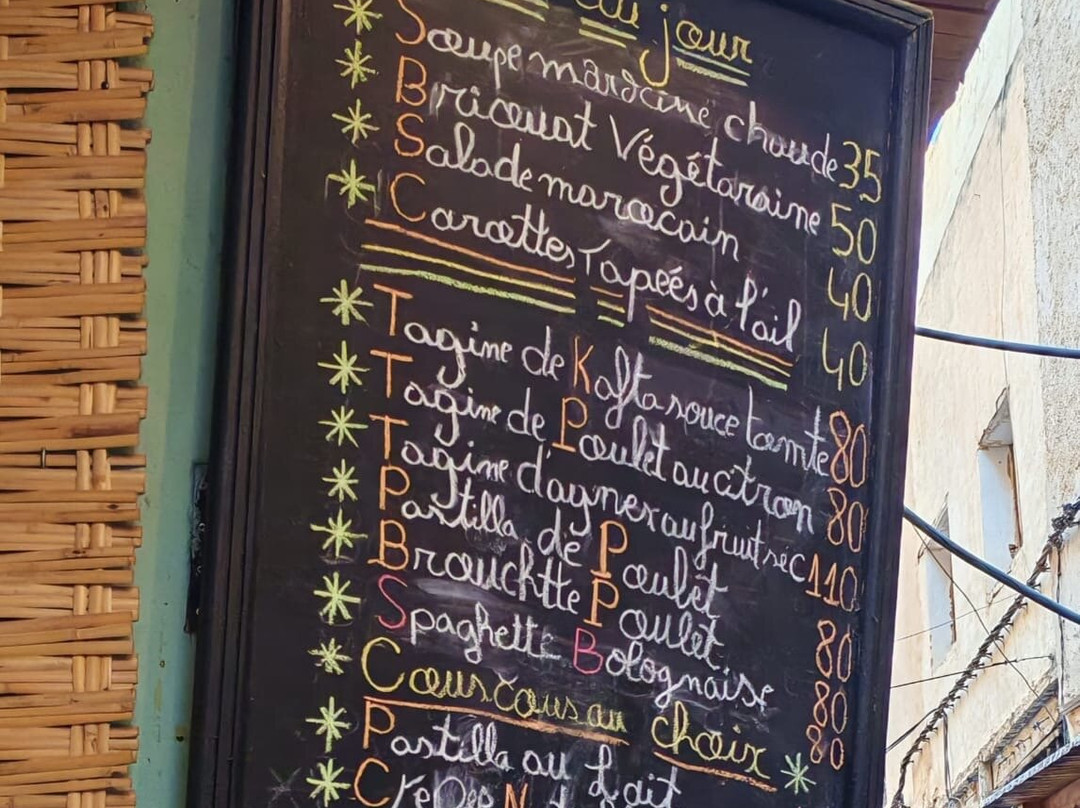 du jour
Soupe marocaine chaude 35
Bricouat Végétaraine 50
Salade marocain 40
Carottes rapeés à l'ail 40
Tagine de Kafta souce tomte 80
Tagine de Poulet au citron 80
Tagine d'agner au fruit sec 110
Pastilla de Poulet 80
Brouchtte Poulet 80
Spaghette Bolognaise 80
Couscous au choix
Pastilla au Lait